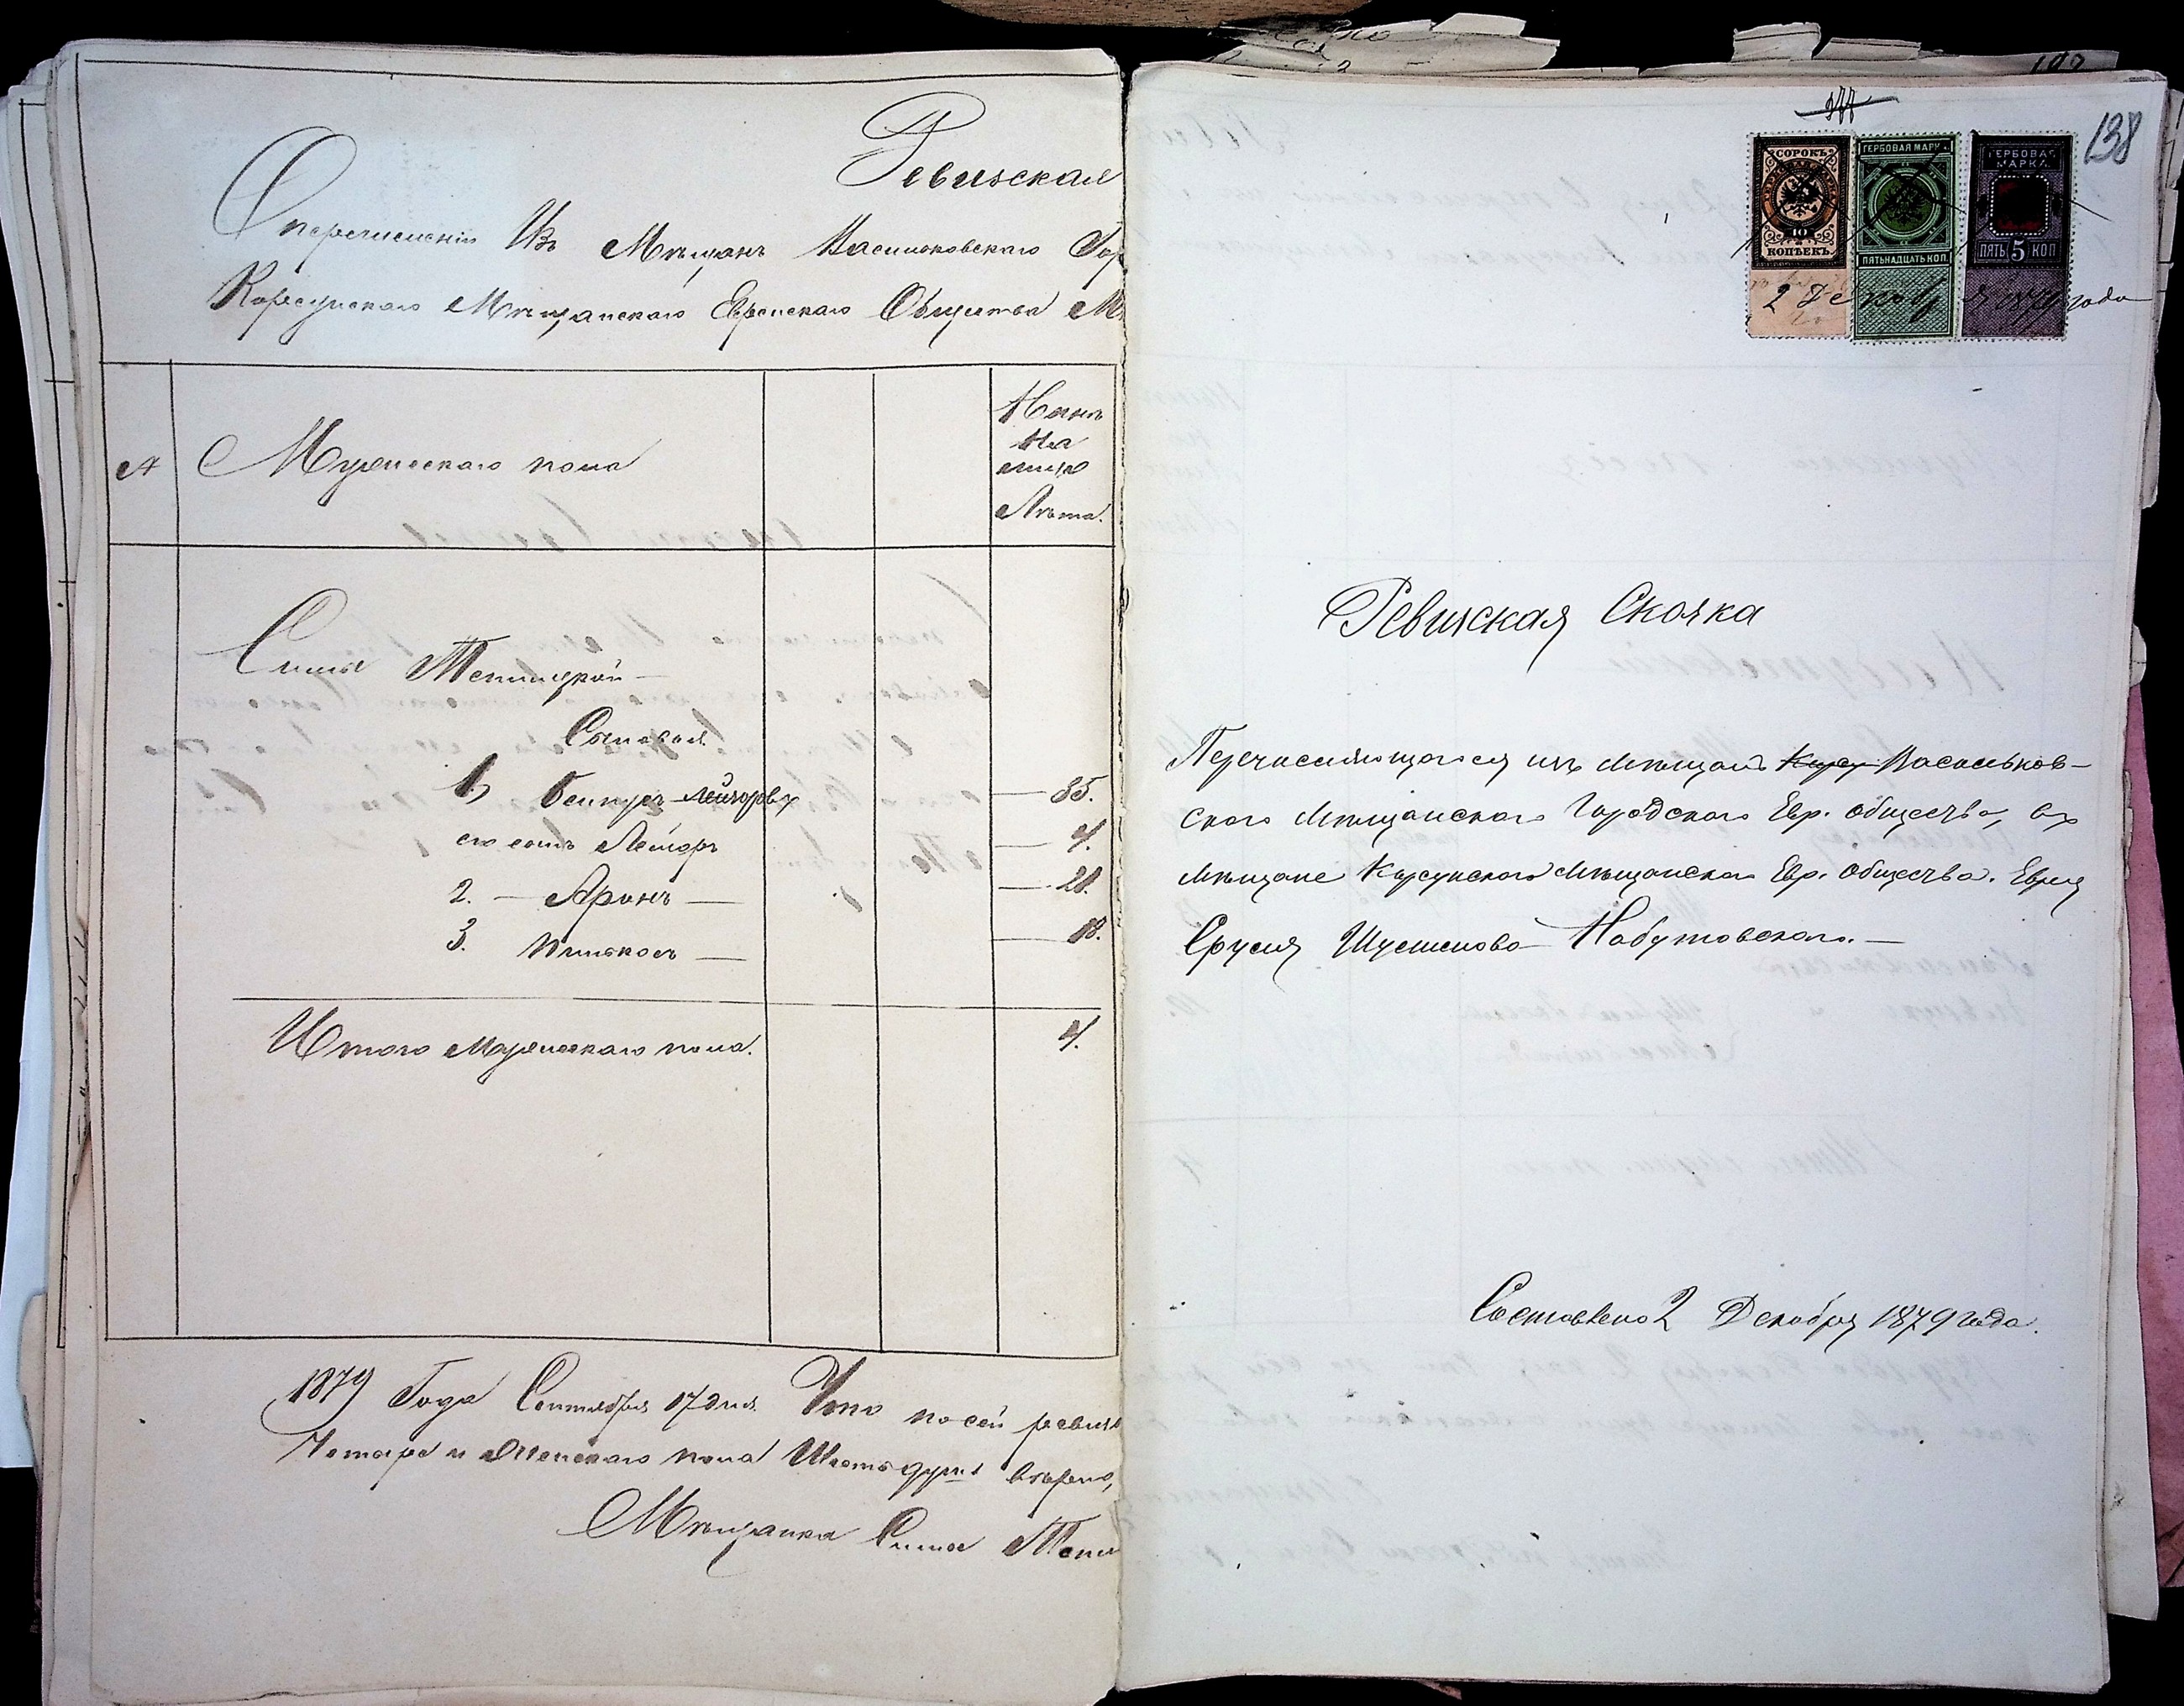 Ревизская
О перечислении Изъ Мѣщанъ Васильковскаго Гор
Корсунскаго Мѣщанскаго Еврейскаго Общества М
№
Мужескаго пола
Нынѣ
На
лицо
Лѣта.
Сима Теплицкой
Сыновья
1, Бенцуръ Лейзоровъ 35.
его сынъ Лейзоръ 4.
2. — Аронъ — 21.
3. Пинькосъ — 18.
Итого Мужескаго пола. 4.
1879 Года Сентября 17 дня. Что по сей ревизс
Четыре и Женскаго пола Шесть душъ вѣрно,
Мѣщанка Сима Тепл
138
СОРОКЪ
10
КОПѢЕКЪ
ГЕРБОВАЯ МАРКА
ПЯТЬНАДЦАТЬ КОП.
ГЕРБОВАЯ
МАРКА
ПЯТЬ 5 КОП
2 Декабря 1879 года
Ревизская Сказка
Перечисляющагося изъ мѣщанъ Корсу Васильков-
скаго Мѣщанскаго Городскаго Евр. Общества, въ
мѣщане Корсунскаго Мѣщанскаго Евр. Общества. Еврея
Сруля Шулимова Набутовскаго. —
Составлено 2 Декабря 1879 года.